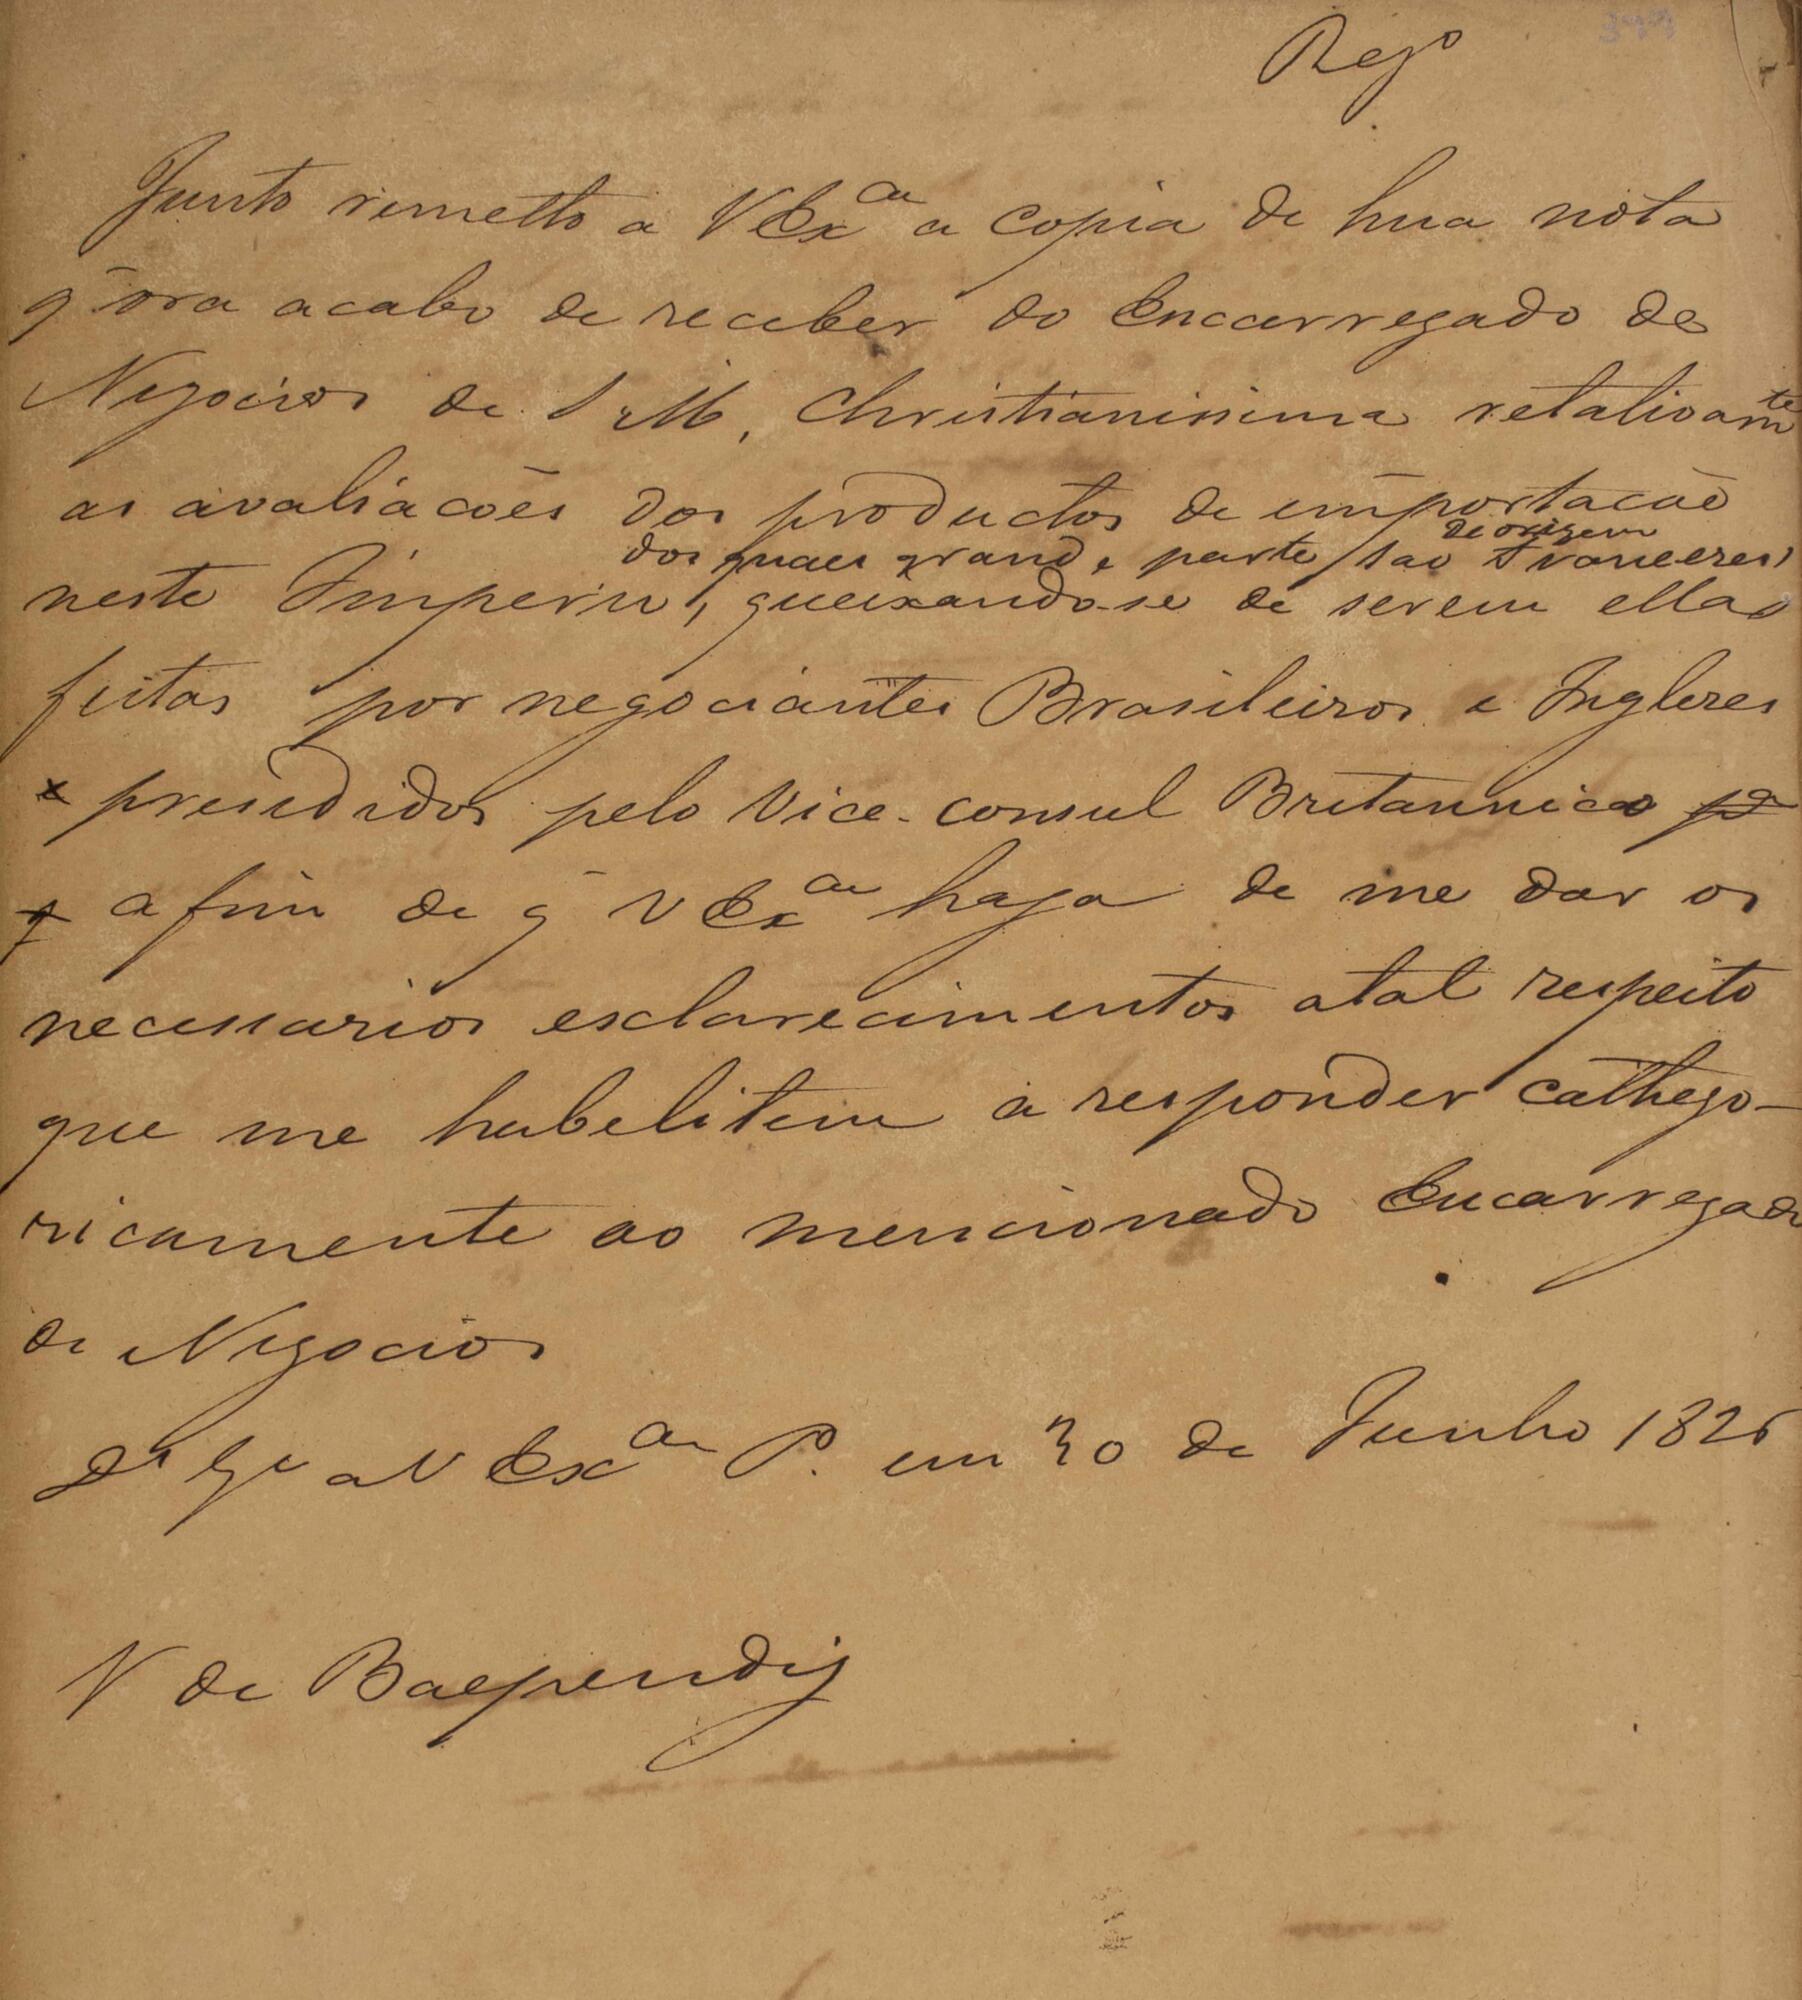 Reg.º
Junto remetto a V Ex.ca a copia de hua nota
q̃ ora acabo de receber do Encarregado de
Negocios de S. M. Christianissima relativam.te
as avaliacões dos productos de importacaõ
dos quaes grande parte sao de origem francezes
neste Imperio, queixando-se de serem ellas
feitas por negociantes Brasileiros e Inglezes
presedidos pelo Vice-consul Britannico
a fim de q̃ V Ex.ca haja de me dar os
necessarios esclarecimentos atal respeito
que me habelitem a responder cathego-
ricamente ao mencionado Encarregado
de Negocios
D.s G.e a V Ex.ca P. em 30 de Junho 1826
V de Baependy